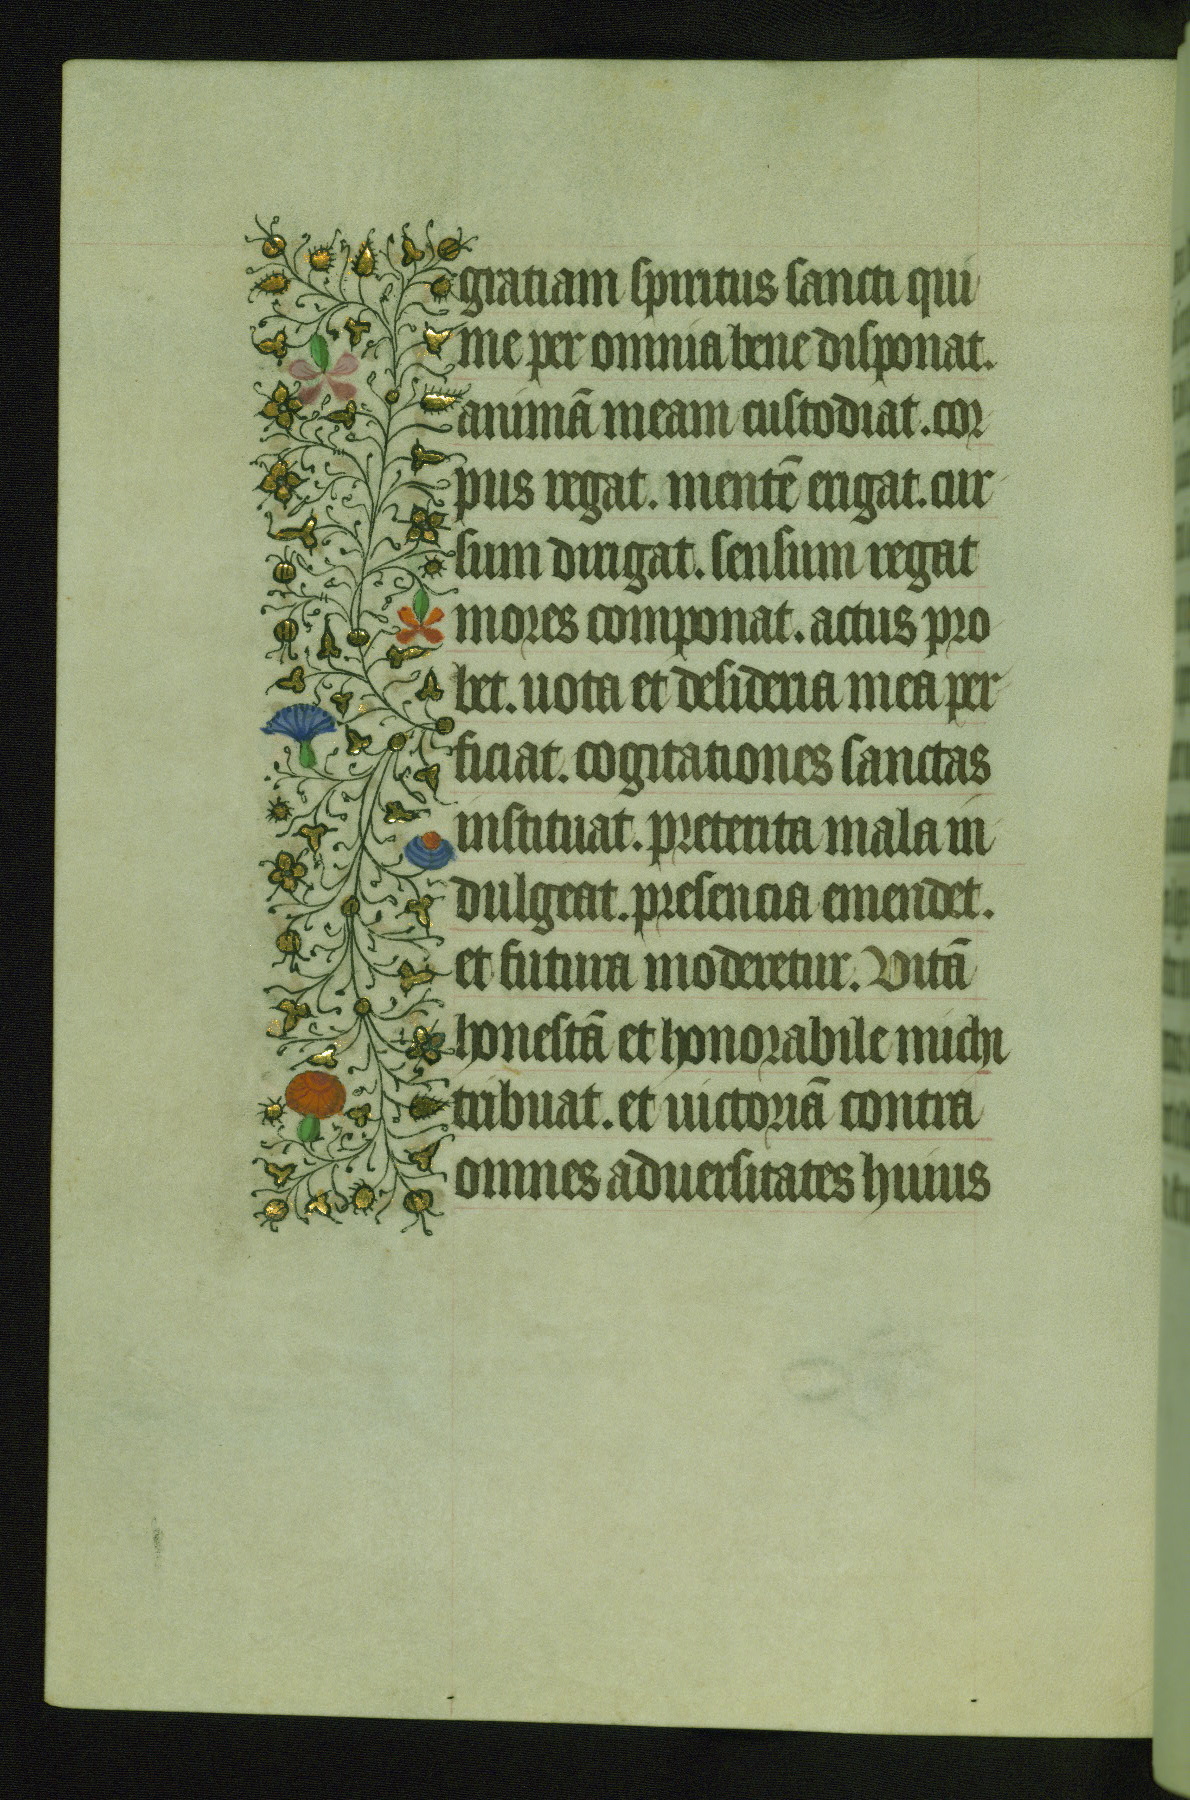 gratiam spiritus sancti qui
me per omnia bene disponat.
animã meam custodiat. cor
pus regat. mentẽ erigat. cur
sum dirigat. sensum regat
mores componat. actus pro
bet. uota et desideria mea per
ficiat. cogitationes sanctas
instituat. preterita mala in
dulgeat. presencia emendet.
et futura moderetur. Vitã
honestã et honorabile michi
tribuat. et uictoriã contra
omnes aduersitates huius